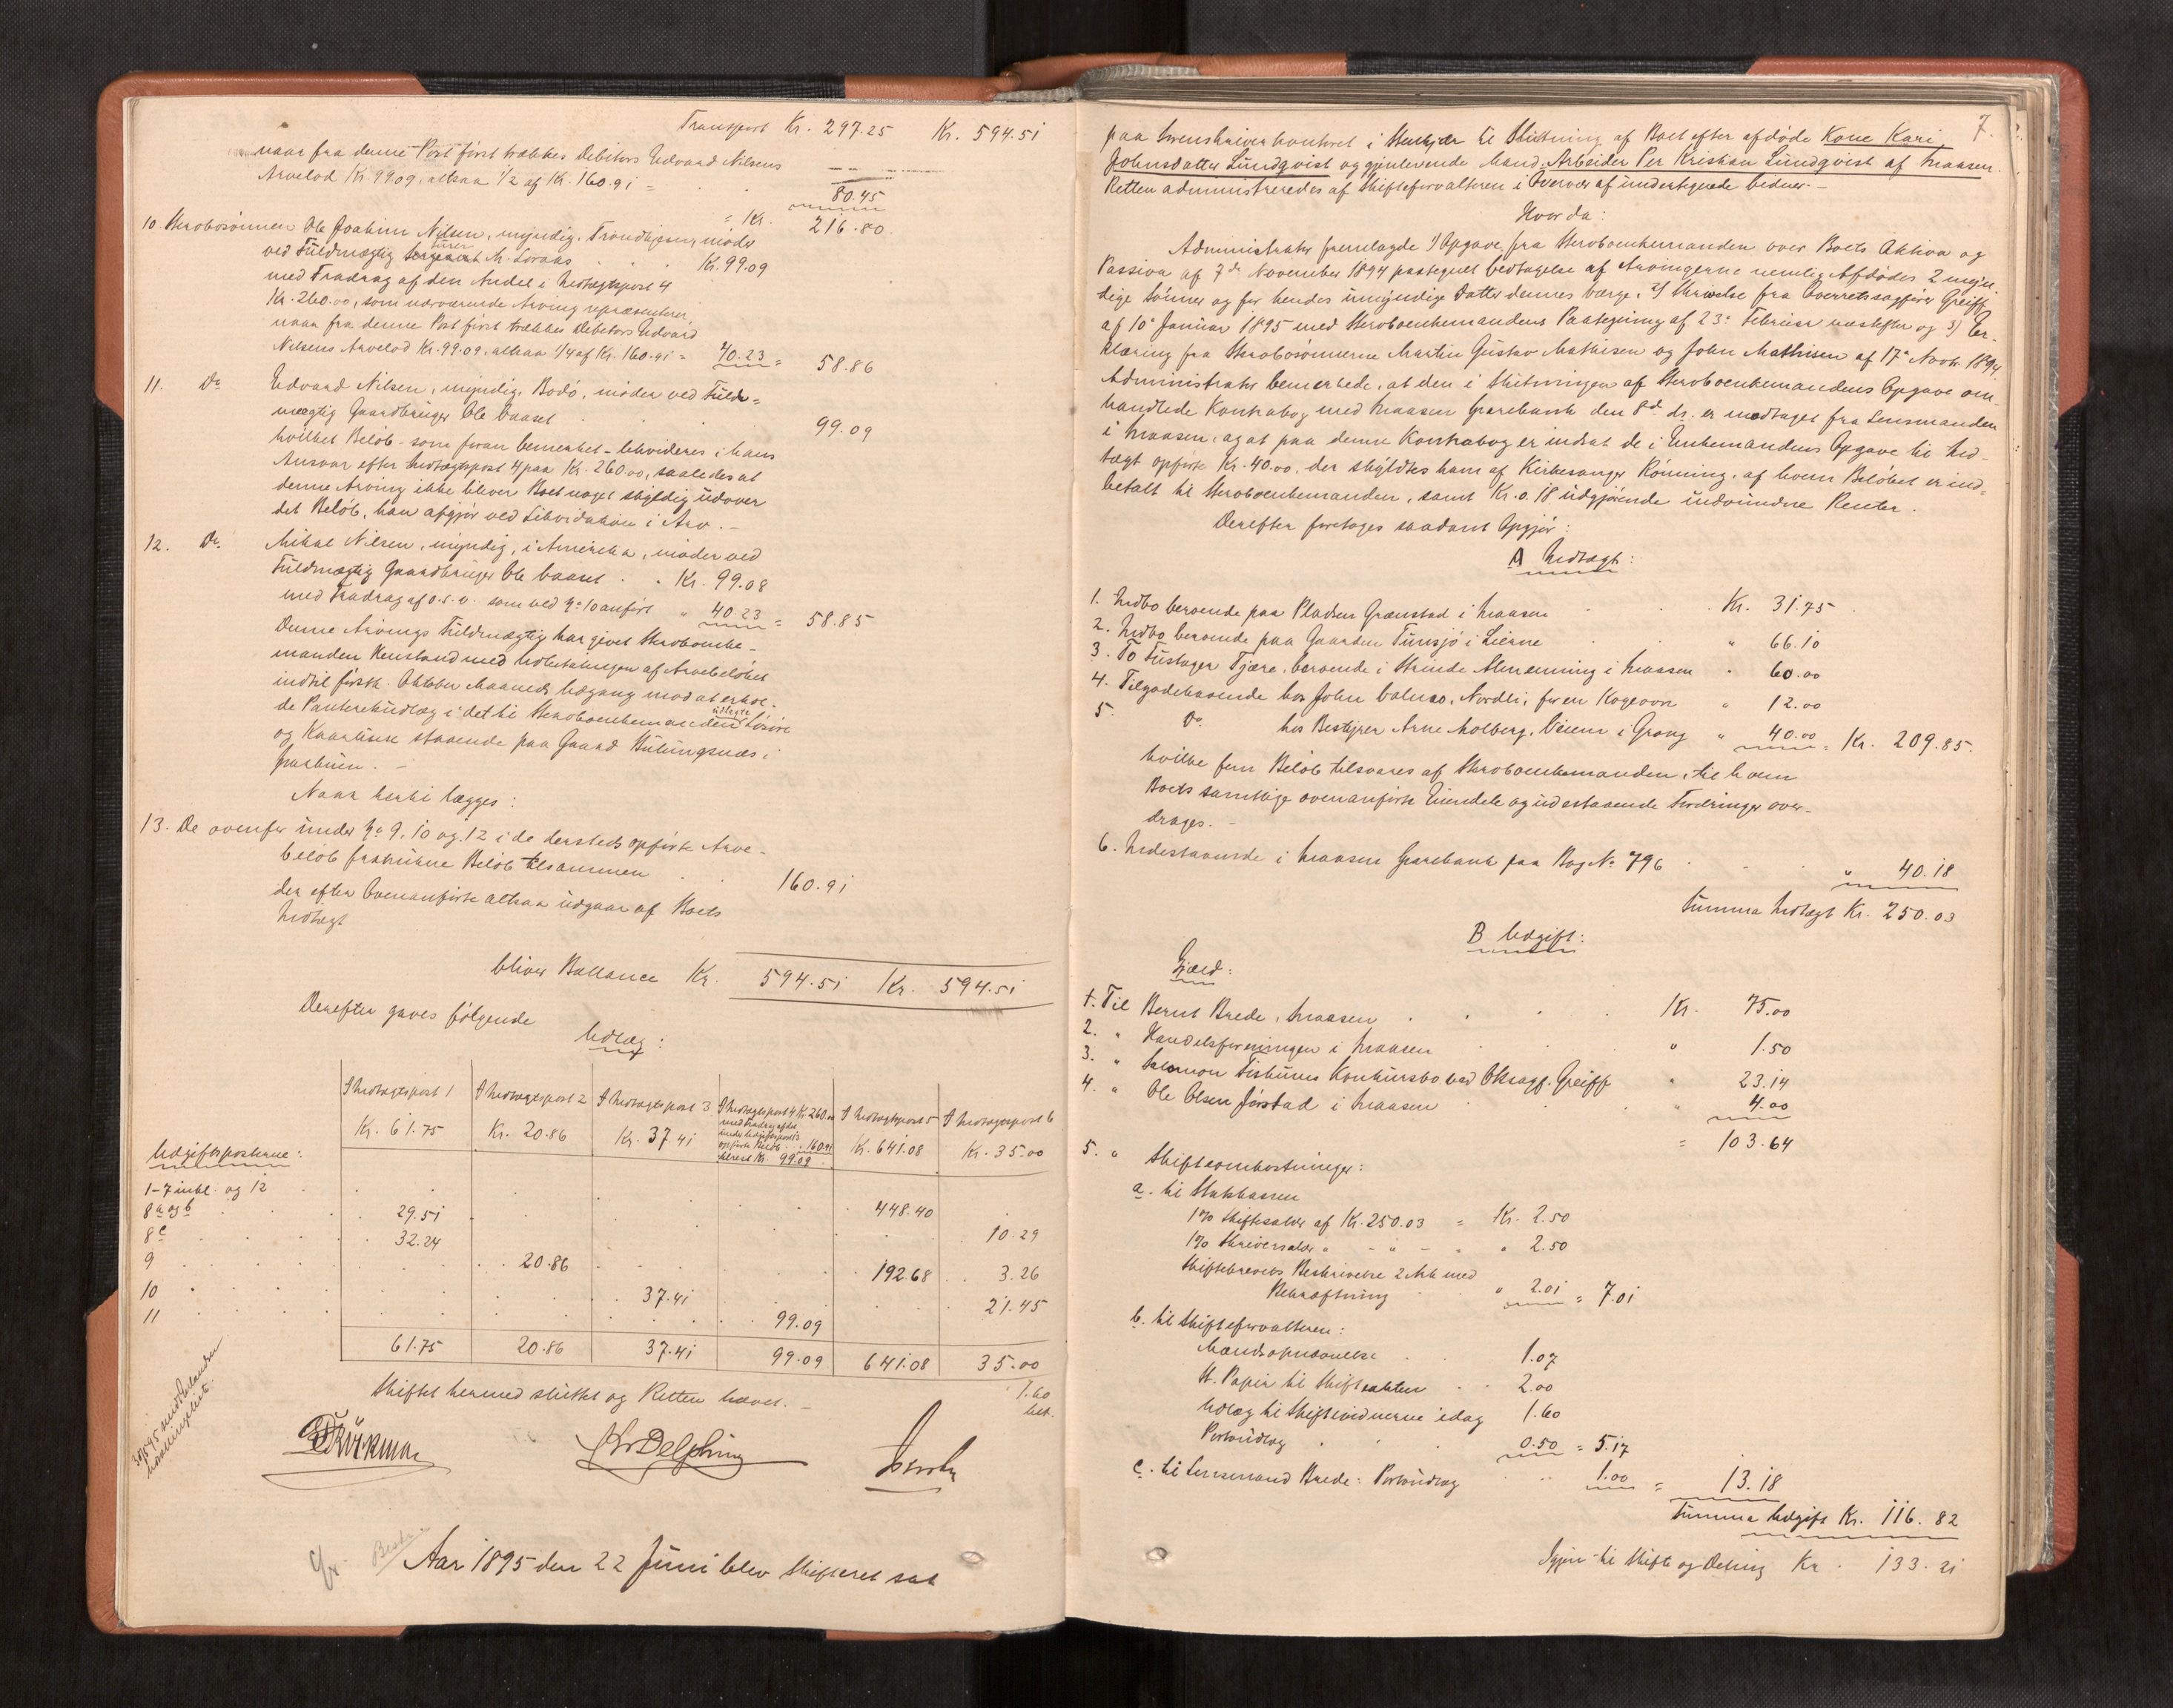 Transport Kr. 297.25 Kr. 594.51
naar fra denne Post først trækkes Debitors Edvard Nilsens
Arvelod Kr. 99.09, altsaa 1/2 af Kr. 160.91 = 80.45
= Kr. 216.80
10. Sterbosønnen Ole Joakim Nilsen, myndig, Trondhjem, møder
ved Fuldmægtig M. Kr. 99.09
med Fradrag af den Andel i Indtægtspost 4
Kr. 260.00, som nærværende Arving repræsenterer,
naar fra denne Post først trækkes Debitors Edvard
Nilsens Arvelod Kr. 99.09, altsaa 1/4 af Kr. 160.91 = 40.23 = 58.86
11. Do. Edvard Nilsen, myndig, Bodø, møder ved Fuld=
mægtig Gaardbruger Ole 99.09
hvilket Beløb - som foran bemerket - likvideres i hans
Ansvar efter Indtægtspost 4 paa Kr. 260.00, saaledes at
denne Arving ikke bliver Boet noget skyldig udover
det Beløb, han afgjør ved Likvidation i Arv. -
12. Do. Mikal Nilsen, myndig, i Amerika, møder ved
Fuldmægtig Gaardbruger Ole Kr. 99.08
med Fradrag af o.s.v. som ved No 10 anført " 40.23 = 58.85
Denne Arvings Fuldmægtig har givet Sterboenke-
manden Henstand med Udbetalingen af Arvebeløbet
indtil førstk. Oktober Maaneds Udgang mod at erhol-
de Panteret i det til Sterboenkemanden udlagte Løsøre
og staaende paa Gaard i
Sparbuen. -
Naar hertil lægges:
13. De ovenfor under No 9, 10 og 12 i de dersteds opførte Arve-
beløb fratrukne Beløb tilsammen 160.91
der efter Ovenanførte altsaa udgaar af Boets
Indtægt
bliver Ballance Kr. 594.51 Kr. 594.51
Derefter gaves følgende
Udlæg:
Udgiftsposterne:
I Indtægtspost 1 I Indtægtspost 2 I Indtægtspost 3 I Indtægtspost 4 Kr. 260.00 I Indtægtspost 5 I Indtægtspost 6
med Fradrag af det
under Udgiftspost 13
opførte Beløb 160.91
Kr. 61.75 Kr. 20.86 Kr. 37.41 Kr. 99.09 Kr. 641.08 Kr. 35.00
1-7 inkl. og 12 448.40
8 a og b 29.51 10.29
8 c 32.24
9 20.86 192.68 3.26
10 37.41 21.45
11 99.09
61.75 20.86 37.41 99.09 641.08 35.00
Skiftet hermed sluttet og Retten hævet. -
1.60
bet.
Kr Delphin
Aar 1895 den 22 Juni blev Skifteret sat
7.
paa Sorenskriverkontoret i Stenkjær til Slutning af Boet efter afdøde Kone Kari
Johnsdatter Lundqvist og gjenlevende Mand, Arbeider Per Kristian Lundqvist af Snaasen.
Retten administreredes af Skifteforvalteren i Overvær af undertegnede Vidner. -
Hvorda:
Administrator fremlagde 1) Opgave fra Sterboenkemanden over Boets Aktiva og
Passiva af 7de November 1894 paategnet Vedtagelse af Arvingerne nemlig Afdødes 2 myn-
dige Sønner og for hendes umyndige Datter dennes Værge, 2) Skrivelse fra Overretssagfører Greiff
af 10de Januar 1895 med Sterboenkemandens Paategning af 23de Februar næstefter og 3) Er-
klæring fra Sterbosønnerne Martin Gustav Mathisen og John Mathisen af 17de Novbr 1894.
Administrator bemerkede, at den i Slutningen af Sterboenkemandens Opgave om-
handlede Kontrabog med Snaasen Sparebank den 8de ds. er modtaget fra Lensmanden
i Snaasen, og at paa denne Kontrabog er indsat de i Enkemandens Opgave til Ind-
tægt opførte Kr. 40.00, der skyldtes ham af Kirkesanger Rønning, af hvem Beløbet er ind=
betalt til Sterboenkemanden, samt Kr. 0.18 udgjørende indvundne Renter.
Derefter foretoges saadant Opgjør:
A Indtægt:
1. Indbo beroende paa Pladsen Grønstad i Snaasen Kr. 31.75
2. Indbo beroende paa Gaarden Tunsjø i Lierne " 66.10
3. To Fustager Tjære, beroende i Strinde Almenning i Snaasen " 60.00
4. Tilgodehavende hos John, Nordli, for en Kogeovn " 12.00
5. Do. hos Bestyrer Arne Holberg, Veiem i Grong " 40.00 = Kr. 209.85.
hvilke fem Beløb tilsvares af Sterboenkemanden, til hvem
Boets samtlige ovenanførte Eiendele og udestaaende Fordringer over-
drages. -
6. Indestaaende i Snaasen Sparebank paa Bog No 796 " 40.18
Summa Indtægt Kr. 250.03
B Udgift:
Gjæld:
1. Til Bernt Brede, Snaasen Kr. 75.00
2. " Handelsforeningen i Snaasen " 1.50
3. " Salamon Fiskums Konkursbo ved Oksagf. Greiff " 23.14
4. " Ole Olsen Jørstad i Snaasen " 4.00
= 103.64
5. " Skifteomkostninger:
a. til Statskassen
1% Skiftesalær af Kr. 250.03 = Kr. 2.50
1% Skriversalær " - " - " " 2.50
Skiftebrevets Beskrivelse 2 Ark med
Bekræftning " 2.01 = 7.01
b. til Skifteforvalteren:
Mandsopnævnelse 1.07
St. Papir til Skifteakten 2.00
Udlæg til Skiftevidnerne idag 1.60
Portoudlæg 0.50 = 5.17
c. til Lensmand Brede: Portoudlæg 1.00 = 13.18
Summa Udgift Kr. 116.82
Igjen til Skifte og Deling Kr. 133.21